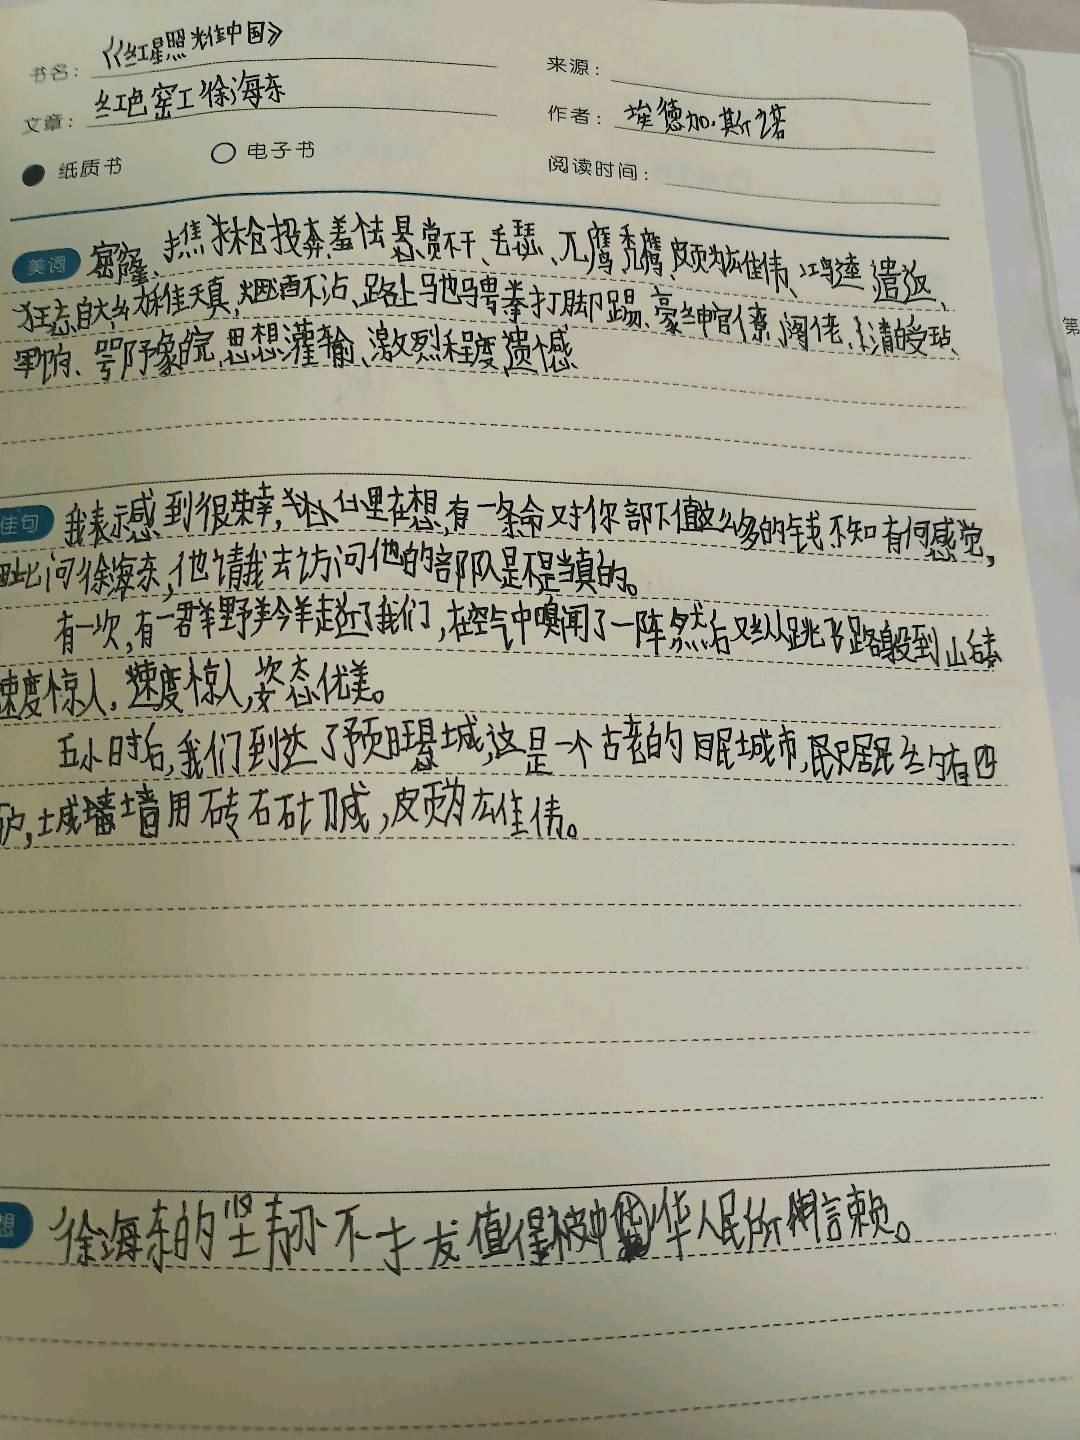 书名： 《红星照耀中国》
来源：
文章： 红色窑工徐海东
作者： 埃德加·斯诺
纸质书 电子书
阅读时间：
美词 窟窿、 投奔、羞怯、悬赏、兀鹰、秃鹰、颇为宏伟、鸿逵、遣返、
狂妄自大、天真、烟酒不沾、路上马也骑、拳打脚踢、豪绅官僚、阔佬、
军饷、 思想灌输、激烈程度、遗憾、
佳句 我表示感到很荣幸,心里在想,有一条命对你部下值这么多的钱不知有何感觉,
因此问徐海东,他请我去访问他的部队是不是当真的。
有一次,有一群野羚羊走近了我们,在空气中嗅闻了一阵然后又纵跳飞躲到山后去
速度惊人,速度惊人,姿态优美。
五小时后,我们到达了预旺县城,这是一个古老的回民城市,居民约有四
户,城墙用砖石砌成,颇为宏伟。
想 徐海东的坚韧不拔值得被中华人民所信赖。
第